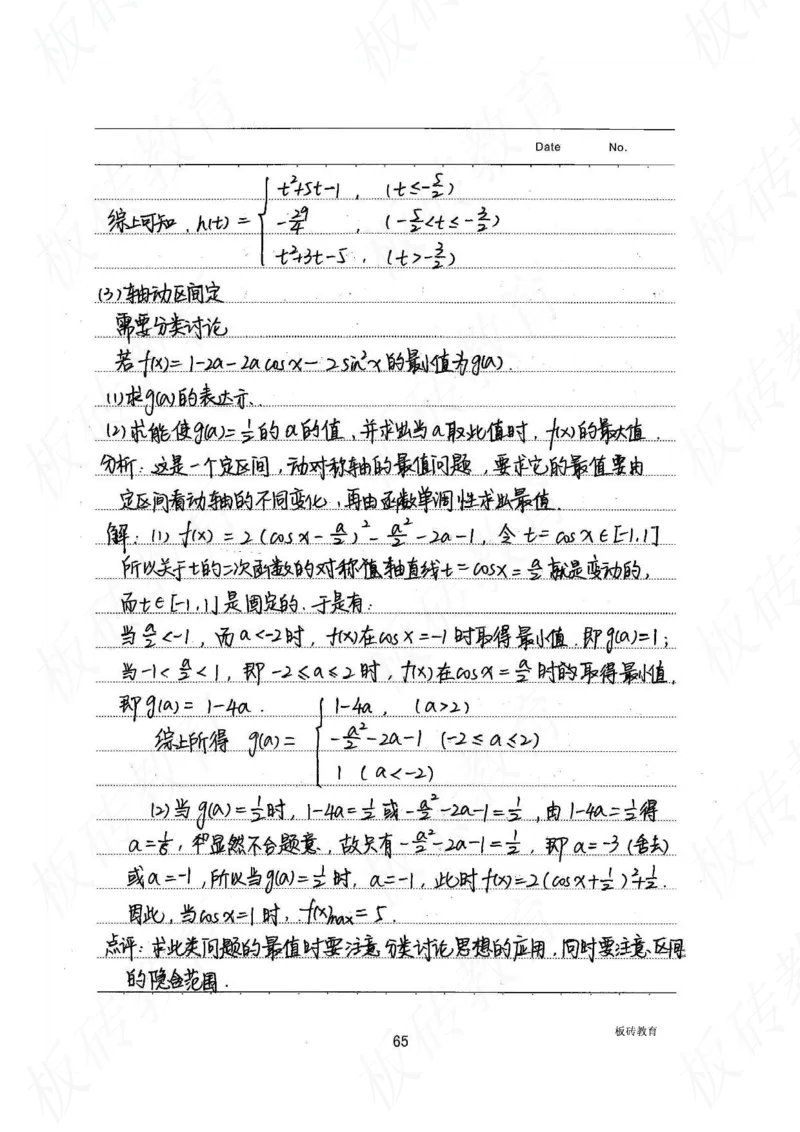 Date No.
综上可知, h(t) = { t²+5t-1, (t≤-5/2)
-29/4, (-5/2<t≤-3/2)
t²+3t-5, (t>-3/2)
(3)轴动区间定
需要分类讨论
若f(x)=1-2a-2acosx-2sin²x的最小值为g(a).
(1)求g(a)的表达示.
(2)求能使g(a)=1/2的a的值,并求出当a取此值时,f(x)的最大值.
分析:这是一个定区间,动对称轴的最值问题,要求它的最值要由
定区间看动轴的不同变化,再由函数单调性求出最值.
解:(1)f(x)=2(cosx-a/2)²-a²/2-2a-1,令t=cosx∈[-1,1]
所以关于t的二次函数的对称轴直线t=cosx=a/2就是变动的,
而t∈[-1,1]是固定的.于是有:
当a/2<-1,而a<-2时,f(x)在cosx=-1时取得最小值.即g(a)=1;
当-1<a/2<1,即-2≤a≤2时,f(x)在cosx=a/2时取得最小值,
即g(a)=1-4a.
综上所得 g(a)= { 1-4a, (a>2)
-a²/2-2a-1 (-2≤a≤2)
1 (a<-2)
(2)当g(a)=1/2时,1-4a=1/2或-a²/2-2a-1=1/2,由1-4a=1/2得
a=1/8,显然不合题意,故只有-a²/2-2a-1=1/2,即a=-3(舍去)
或a=-1,所以当g(a)=1/2时,a=-1,此时f(x)=2(cosx+1/2)²+1/2.
因此,当cosx=1时,f(x)max=5.
点评:求此类问题的最值时要注意分类讨论思想的应用,同时要注意区间
的隐含范围.
板砖教育
65